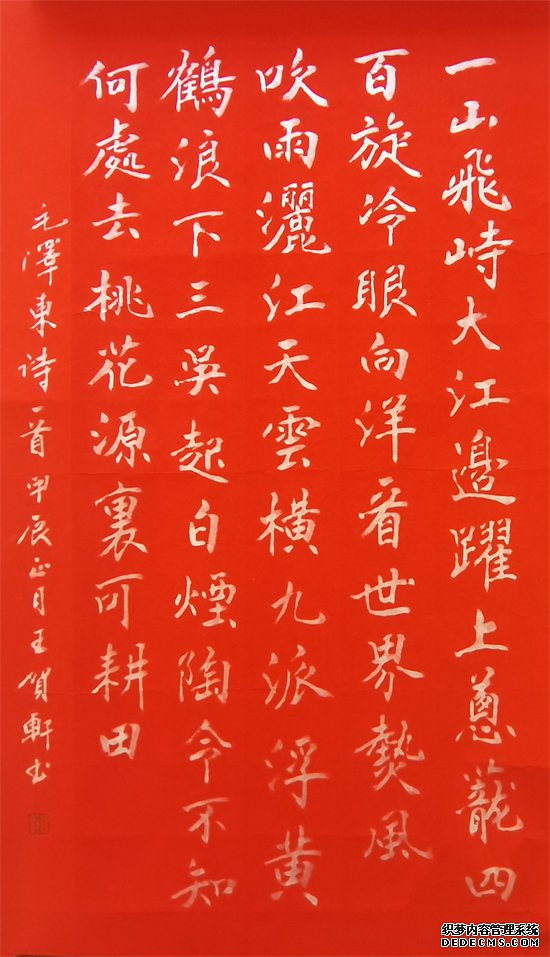 一山飛峙大江邊躍上蔥蘢四
百旋冷眼向洋看世界熱風
吹雨灑江天雲橫九派浮黄
鶴浪下三吴起白煙陶令不知
何處去桃花源裏可耕田
毛澤東诗一首甲辰正月王贺軒书
织梦内容管理系统
DEDECMS.COM